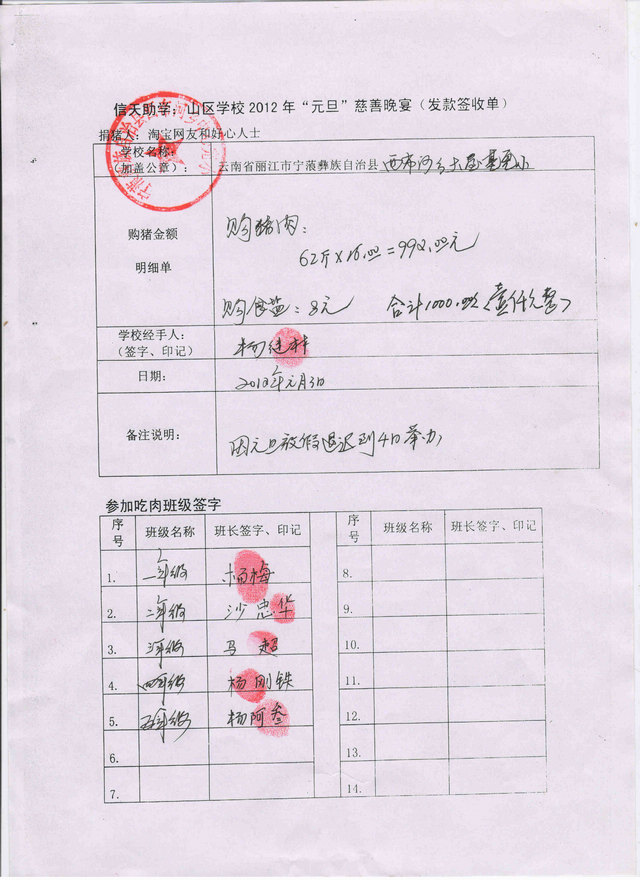 信天助学：山区学校2012年“元旦”慈善晚宴（发款签收单）
捐猪人：淘宝网友和好心人士
学校名称：
（加盖公章）： 云南省丽江市宁蒗彝族自治县 西布河乡
购猪金额
明细单
购猪肉：
62斤×16.00=992.00元
购食盐：8元 合计1000.00（壹仟元整）
学校经手人：
（签字、印记）
日期： 2012年元月3日
备注说明： 因元旦放假退迟到4日举办
参加吃肉班级签字
序号 班级名称 班长签字、印记 序号 班级名称 班长签字、印记
1. 一年级 杨梅 8.
2. 二年级 沙忠华 9.
3. 三年级 马超 10.
4. 四年级 杨刚铁 11.
5. 五年级 杨阿叁 12.
6. 13.
7. 14.